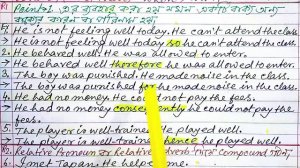 Point-1 এর ব্যবহার করা হয় যখন একটি বাক্য অন্য
বাক্যের কারন বা পরিনাম হয়।
1. He is not feeling well today. He can't attend the class.
→ He is not feeling well today so he can't attend the class.
2. He behaved well. He was allowed to enter.
→ He behaved well therefore he was allowed to enter.
3. The boy was punished. He made noise in the class.
→ The boy was punished for he made noise in the class.
4. He had no money. He could not pay the fees.
→ He had no money consequently he could not pay the
fees.
5. The player is well-trained. He played well.
→ The player is well-trained hence he played well.
Relative Pronoun বা Relative Adverb দিয়ে Compound
I met Tapan. He helped me.